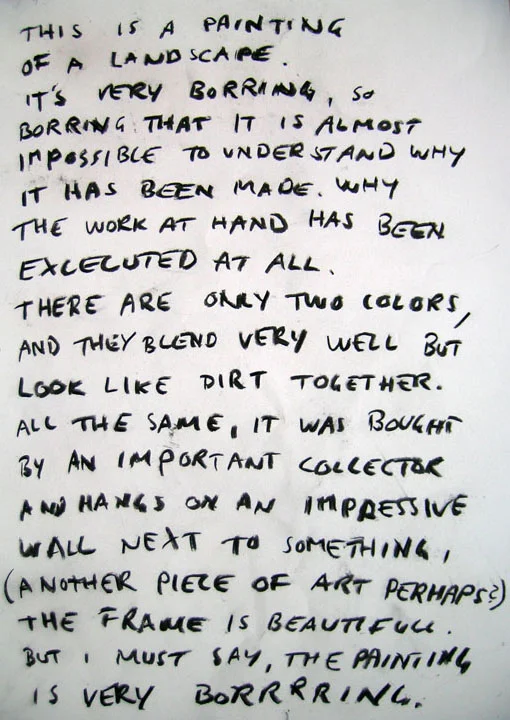 THIS IS A PAINTING
OF A LANDSCAPE.
IT'S VERY BORRING, SO
BORRING THAT IT IS ALMOST
IMPOSSIBLE TO UNDERSTAND WHY
IT HAS BEEN MADE. WHY
THE WORK AT HAND HAS BEEN
EXCECUTED AT ALL.
THERE ARE ONLY TWO COLORS,
AND THEY BLEND VERY WELL BUT
LOOK LIKE DIRT TOGETHER.
ALL THE SAME, IT WAS BOUGHT
BY AN IMPORTANT COLLECTOR
AND HANGS ON AN IMPRESSIVE
WALL NEXT TO SOMETHING,
(ANOTHER PIECE OF ART PERHAPS?)
THE FRAME IS BEAUTIFULL.
BUT I MUST SAY, THE PAINTING
IS VERY BORRRRING.